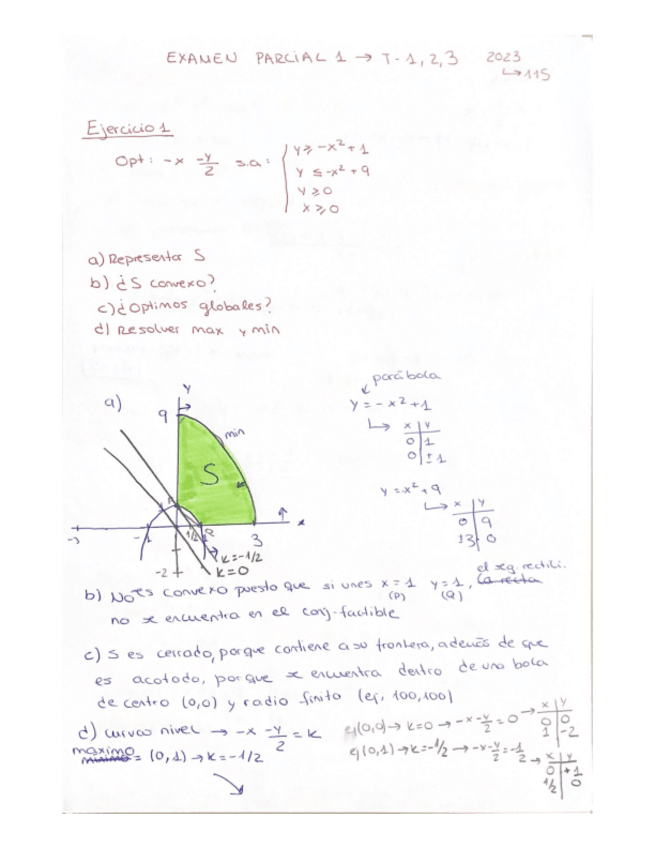 EXAMEN PARCIAL 1 → T-1,2,3 2023
↳115
Ejercicio 1
Opt: -x -y/2 s.a:
y ≥ -x² + 1
y ≤ -x² + 9
y ≥ 0
x ≥ 0
a) Representar S
b) ¿S convexo?
c) ¿Optimos globales?
d) Resolver max y min
a)
y
9
min
S
x
-3
-1
1/2
1
3
-2
k=-1/2
k=0
parábola
y = -x² + 1
x y
0 1
0 ±1
y=-x²+9
x y
0 9
13 0
b) No es convexo puesto que si unes x=1 (P) y=1 (Q), el seg. rectili. la recta
no se encuentra en el conj. factible
c) S es cerrado, porque contiene a su frontera, además de que
es acotado, porque se encuentra dentro de una bola
de centro (0,0) y radio finito (ej, 100,100)
d) curvas nivel → -x -y/2 = k
ej(0,0) → k=0 → -x-y/2=0 →
x y
0 0
1 -2
maximo
minimo = (0,1) → k=-1/2
ej(0,1) → k=-1/2 → -x-y/2=-1/2 →
x y
0 +1
1/2 0